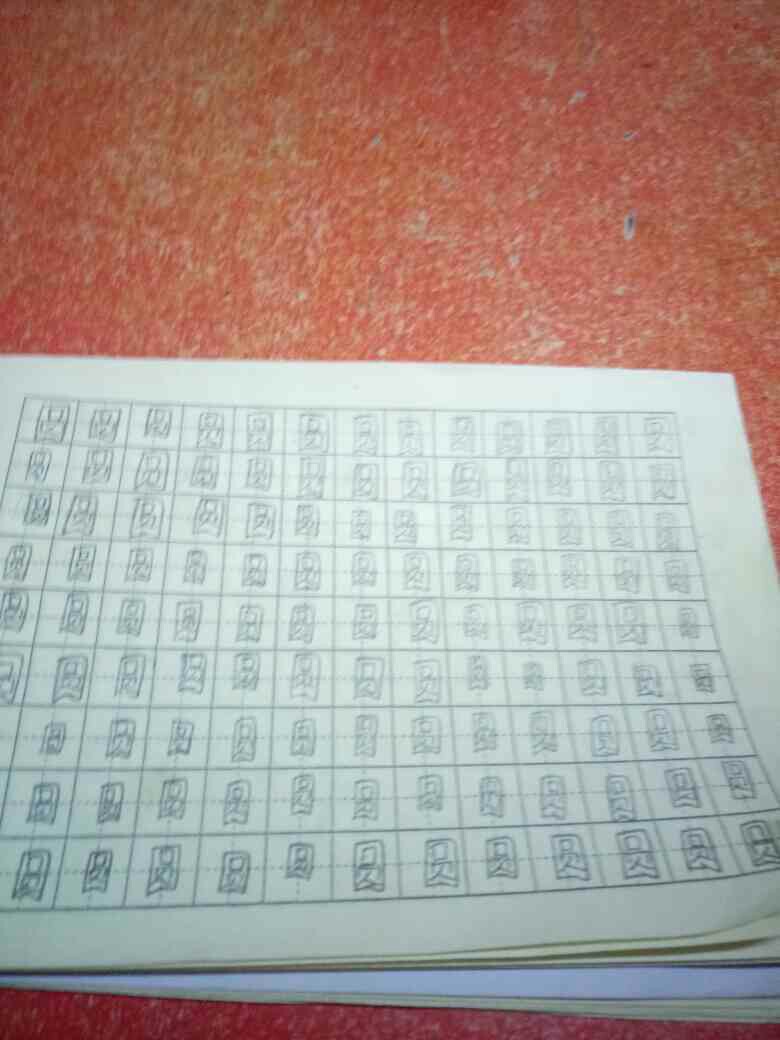 圆圆圆圆圆圆圆圆圆圆圆圆圆
圆圆圆圆圆圆圆圆圆圆圆圆圆
圆圆圆圆圆圆圆圆圆圆圆圆圆
圆圆圆圆圆圆圆圆圆圆圆圆圆
圆圆圆圆圆圆圆圆圆圆圆圆圆
圆圆圆圆圆圆圆圆圆圆圆圆圆
圆圆圆圆圆圆圆圆圆圆圆圆
圆圆圆圆圆圆圆圆圆圆圆圆
圆圆圆圆圆圆圆圆圆圆圆圆